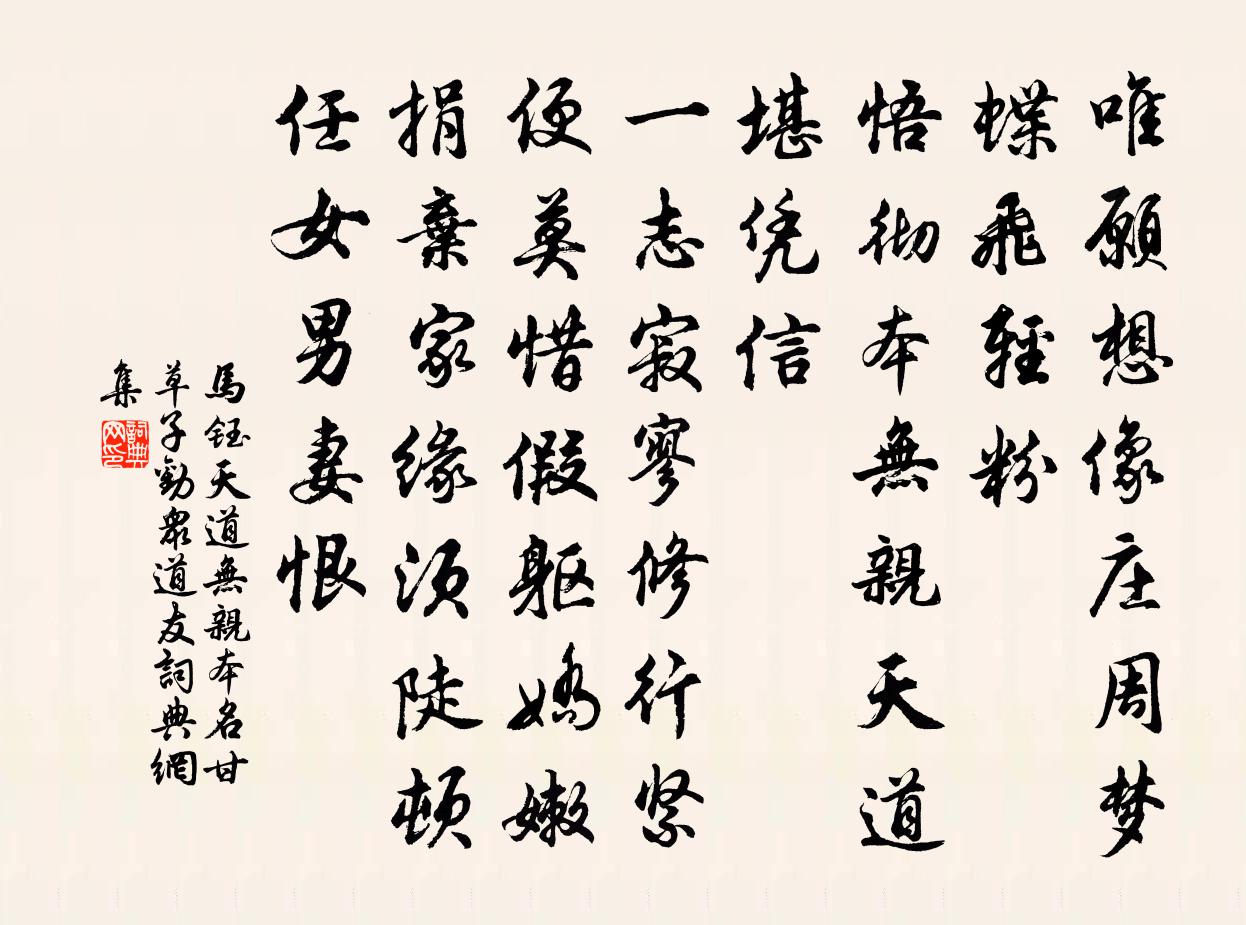 唯願想像庄周梦
蝶飛輕粉
悟彻本無親天道
堪凭信
一志寂寥修行紧
便莫惜假軀嬌嫩
捐棄家緣須陡頓
任女男妻恨
馬鈺天道無親本名甘
草子勸衆道友詞典網
集
詞典
网印